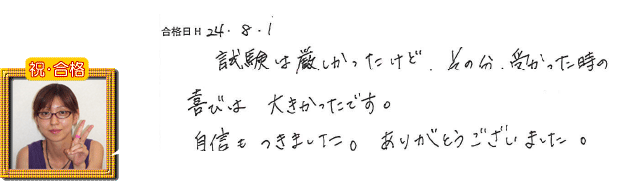 合格日 H 24.8.1
試験は厳しかったけど、その分、受かった時の
祝・合格
喜びは 大きかったです。
自信もつきました。ありがとうございました。